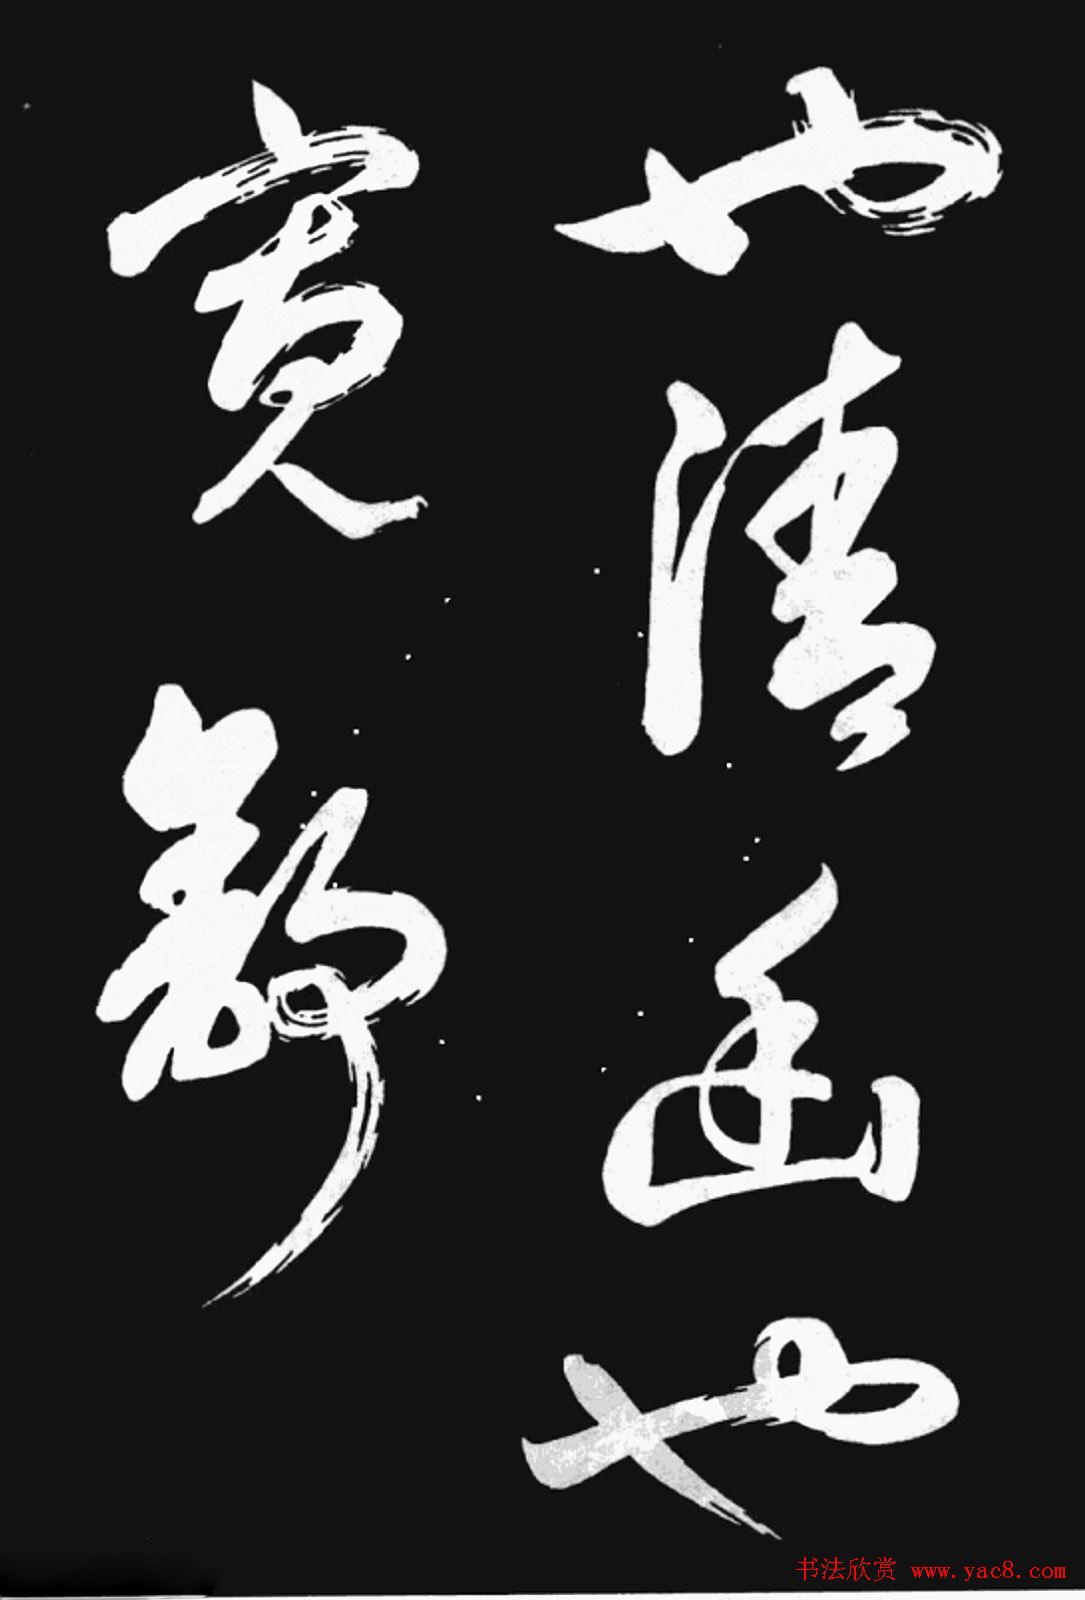 也清幽也
寬舒
书法欣赏 www.yac8.com